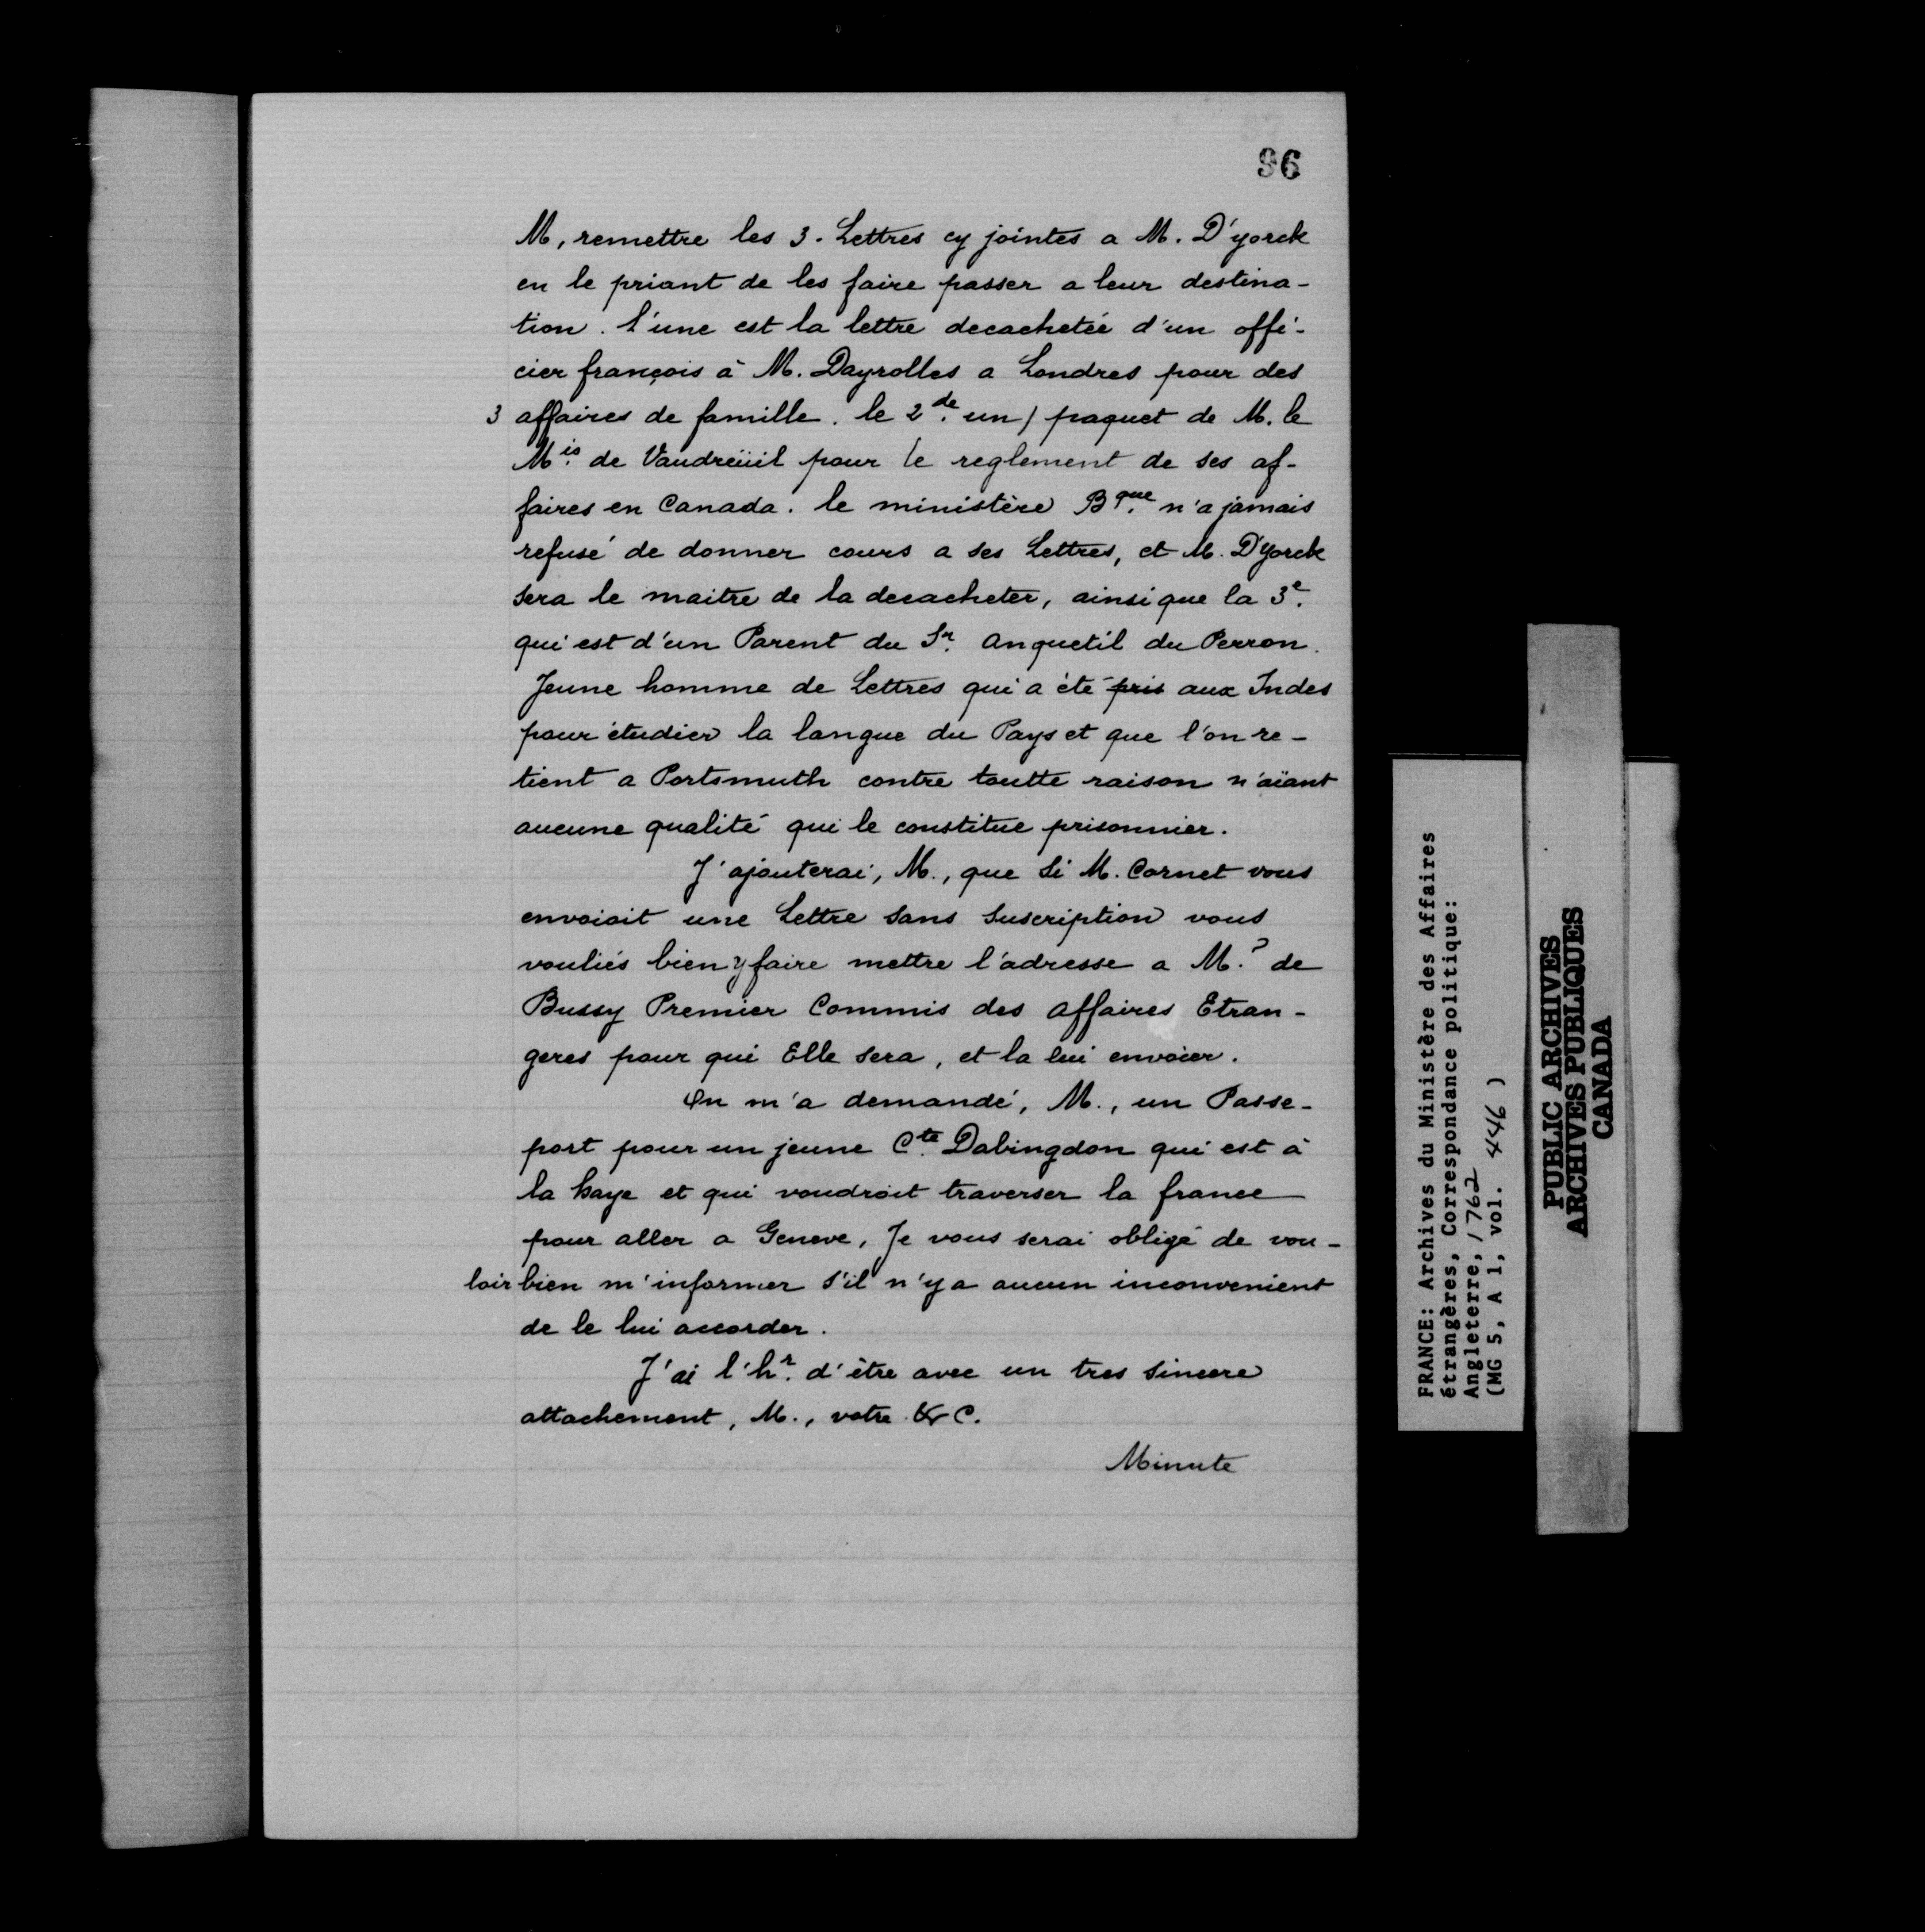 96
M, remettre les 3. Lettres cy jointes a M. D'yorck
en le priant de les faire passer a leur destina-
tion. l'une est la lettre decachetée d'un offi-
cier françois à M. Dayrolles a Londres pour des
3 affaires de famille. le 2de. un/ paquet de M. le
Mis. de Vaudreüil pour le reglement de ses af-
faires en Canada. le ministère Bque. n'a jamais
refusé de donner cours a ses Lettres, et M. D'Yorck
sera le maitre de la decacheter, ainsi que la 3e.
qui est d'un Parent du Sr. anquetil du Perron.
Jeune homme de Lettres qui a été pris aux Indes
pour étudier la langue du Pays et que l'on re-
tient a Portsmuth contre toutte raison n'aïant
aucune qualité qui le constitue prisonnier.
J'ajouterai, M., que si M. Cornet vous
envoioit une Lettre sans suscription vous
vouliés bien y faire mettre l'adresse a M.? de
Bussy Premier Commis des affaires Etran-
geres pour qui Elle sera, et la lui envoier.
On m'a demandé, M., un Passe-
port pour un jeune Cte. Dabingdon qui est à
la haye et qui voudroit traverser la france
pour aller a Geneve, Je vous serai obligé de vou-
loir bien m'informer s'il n'y a aucun inconvenient
de le lui accorder.
J'ai l'hr. d'être avec un tres sincere
attachement, M., votre &c.
Minute
FRANCE: Archives du Ministère des Affaires
étrangères, Correspondance politique:
Angleterre, 1762
(MG 5, A 1, vol. 446 )
PUBLIC ARCHIVES
ARCHIVES PUBLIQUES
CANADA